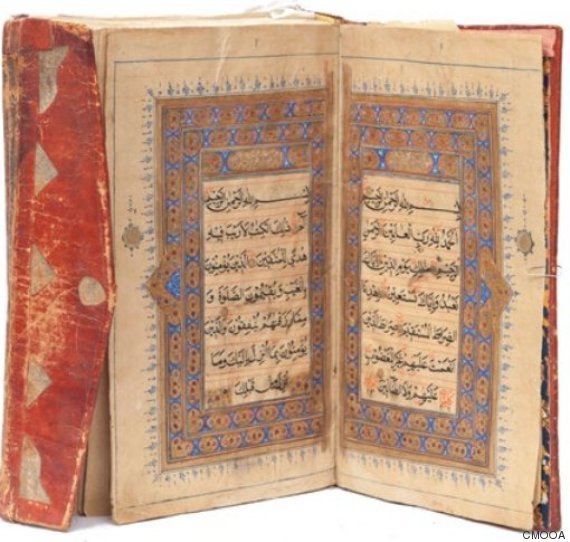 بسم الله الرحمن الرحيم
الحمد لله رب العالمين الرحمن
الرحيم مالك يوم الدين اياك
نعبد واياك نستعين اهدنا
الصراط المستقيم صراط الذين
انعمت عليهم غير المغضوب
عليهم ولا الضالين
بسم الله الرحمن الرحيم
الم ذلك الكتب لا ريب فيه
هدى للمتقين الذين يؤمنون
بالغيب ويقيمون الصلوة و
مما رزقنهم ينفقون والذين
يؤمنون بما انزل اليك وما
انزل من قبلك
CMOOA